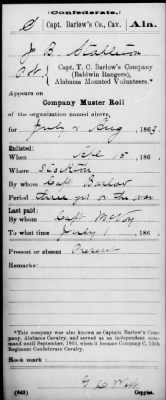 (Confederate.)
S | Capt. Barlow's Co., Cav. | Ala.
J. B. Stapleton
Pvt, Capt. T. C. Barlow's Company
(Baldwin Rangers),
Alabama Mounted Volunteers.*
Appears on
Company Muster Roll
of the organization named above,
for July & Aug, 186
Enlisted:
When 15, 186
Where Stockton
By whom Capt Barlow
Period three yrs or the war
Last paid:
By whom Capt McVoy
To what time July 1, 186
Present or absent Present
Remarks:
*This company was also known as Captain Barlow's Company, Alabama Cavalry, and served as an independent command until September, 1863, when it became Company C, 15th Regiment Confederate Cavalry.
Book mark:
(642) Copyist.